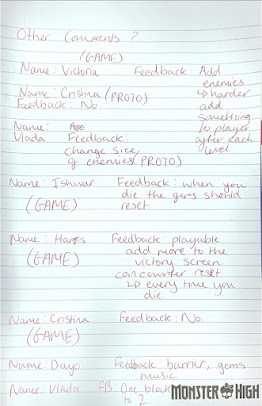 Other Comments ?
(GAME)
Name: Victoria Feedback: Add
enemies
↳ harder
add
something
to player
after each
level
Name: Cristina (PROTO)
Feedback: No.
Name:
Vlada Feedback:
change size,
of enemies (PROTO)
Name: Ishwar Feedback: when you
die the gems should
reset
(GAME)
Name: Harris Feedback: playable
add more to the
victory screen
(GAME)
counter reset
↳ every time you
die
Name: Cristina Feedback: No.
(GAME)
Name Dayo Feedback barrier, gems
music
Name: Vlada FB: One block
to 2
MONSTER HIGH